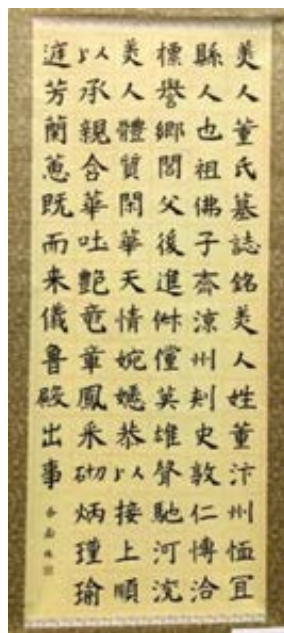 美人董氏墓誌銘美人姓董汴州恤冝
縣人也祖佛子齊涼州刺史敦仁博洽
標譽鄉閭父後進俶儻英雄聲馳河渷
美人體質閑華天情婉嫕恭以接上順
以承親含華吐艷竜章鳳采砌炳瑾瑜
逰芳蘭蕙既而来儀魯殿出事